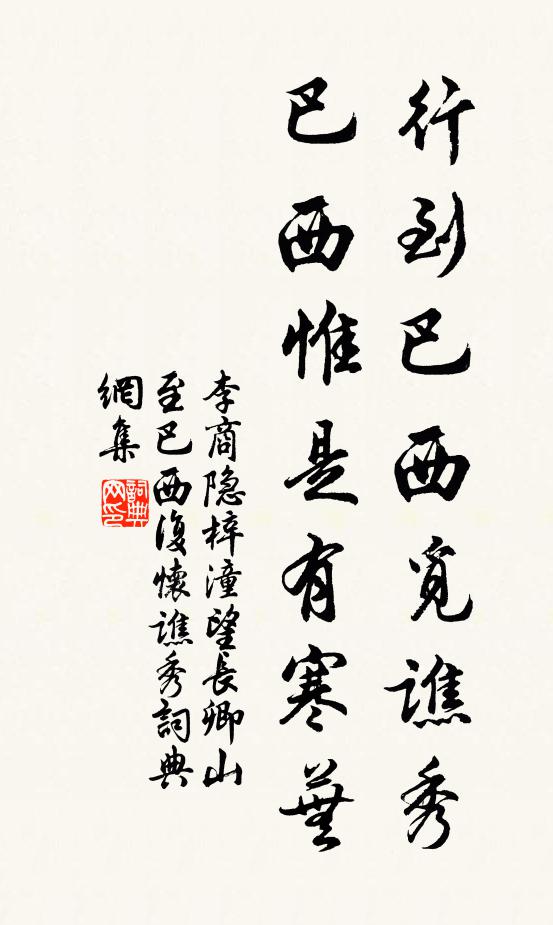 行到巴西覓譙秀
巴西惟是有寒蕪
李商隐梓潼望長卿山
至巴西復懷譙秀詞典
網集
詞典
網印